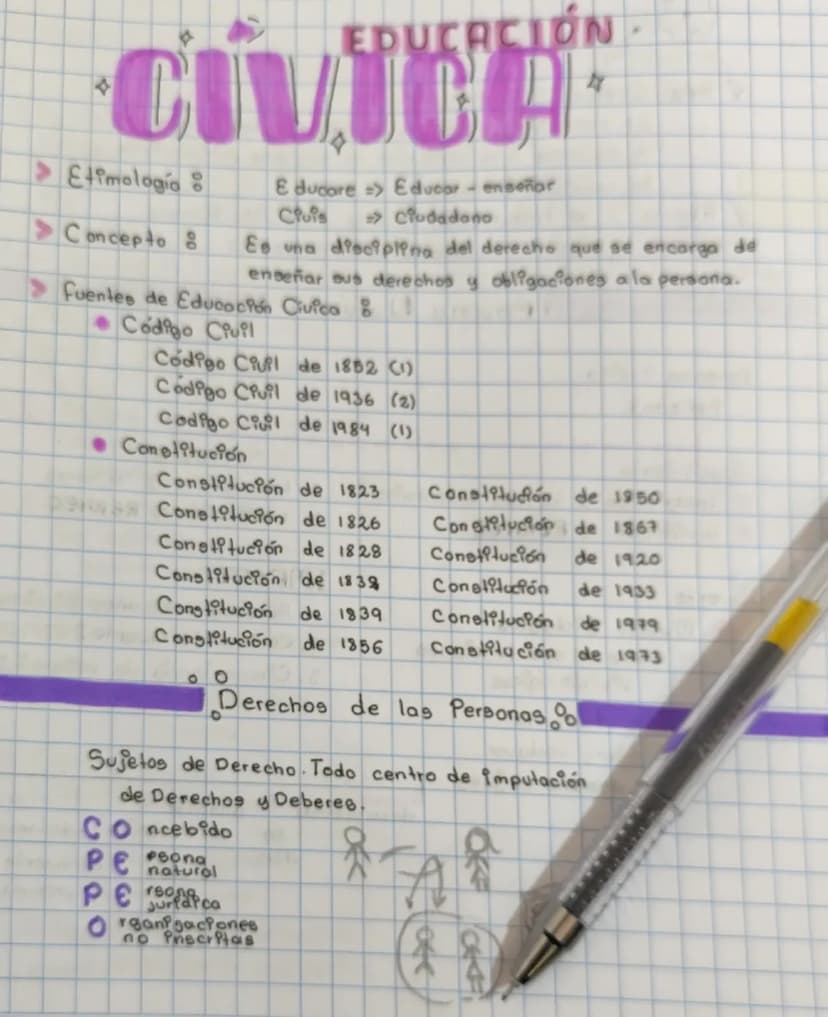 EDUCACIÓN
CÍVICA
> Etimología: Educare => Educar - enseñar
Civis => Ciudadano
> Concepto: Es una disciplina del derecho que se encarga de
enseñar sus derechos y obligaciones a la persona.
> Fuentes de Educación Cívica:
• Código Civil
Código Civil de 1852 (1)
Código Civil de 1936 (2)
Codigo Civil de 1984 (1)
• Constitución
Constitución de 1823 Constitución de 1850
Constitución de 1826 Constitución de 1867
Constitución de 1828 Constitución de 1920
Constitución de 1838 Constitución de 1933
Constitución de 1839 Constitución de 1979
Constitución de 1856 Constitución de 1973
Derechos de las Personas
Sujetos de Derecho. Todo centro de imputación
de Derechos y Deberes.
COncebido
PErsona
natural
PErsona
jurídica
Organizaciones
no inscritas